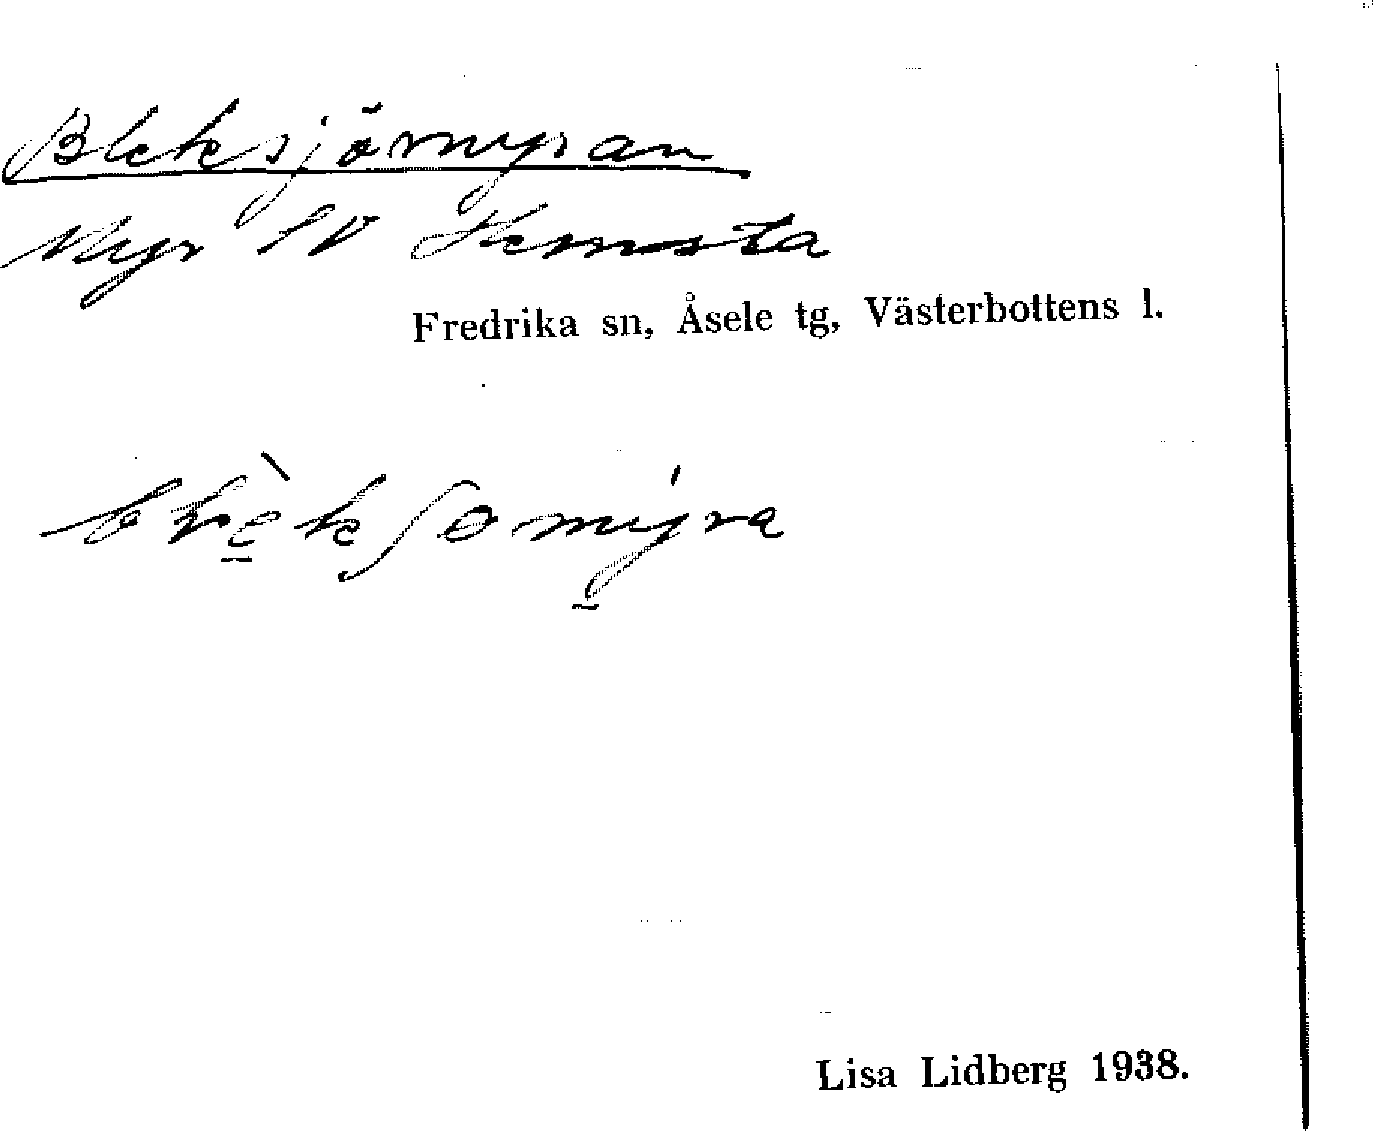 Bleksjömyran
Myr SV Hemsta
Fredrika sn, Åsele tg, Västerbottens l.
Lisa Lidberg 1938.